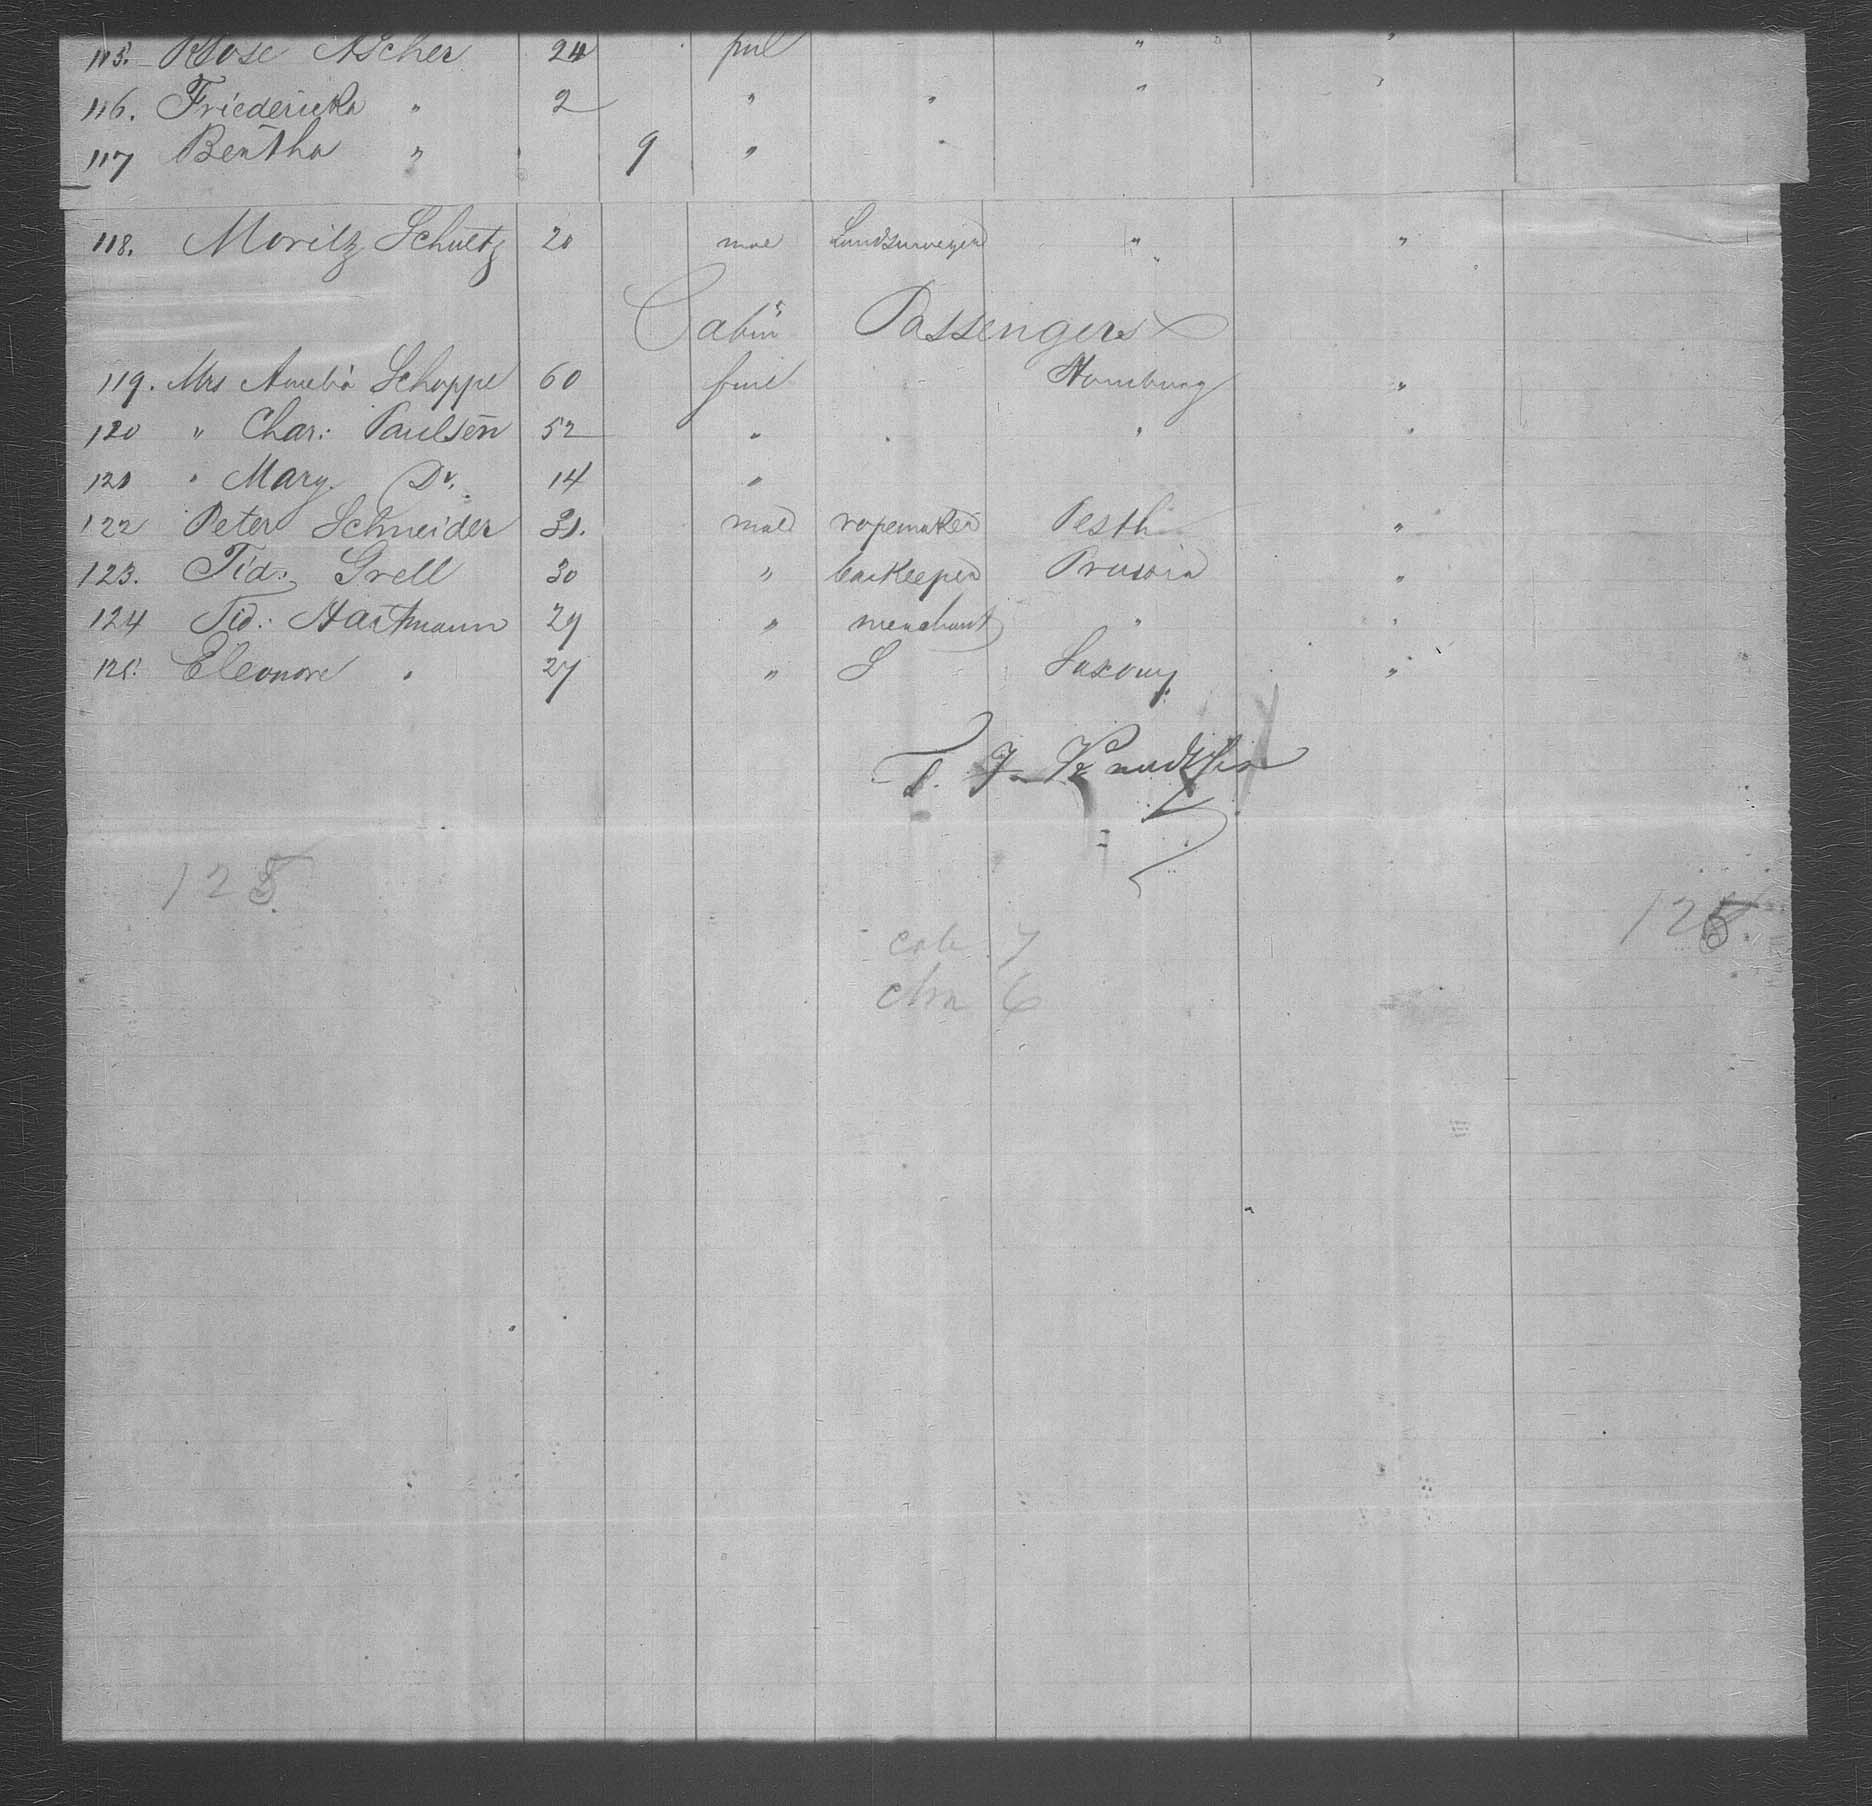 115. Rose Ascher 24 fml " "
116. Friedericka " 2 " " " "
117 Bertha " 9 " "
118. Moritz Schultz 20 mae Landsurveyer " "
Cabin Passengers
119. Mrs Amelia Schoppe 60 fml Hamburg "
120 " Char: Paulsen 52 " " " "
121 " Mary Do. 14 "
122 Peter Schneider 31. male ropemaker Pesth "
123. Fid. Grell 30 " barkeeper Prussia "
124 Fid: Hartmann 29 " merchant " "
125. Eleonore " 27 " S Saxony "
T. J.
125
125
cab 7
chn 6